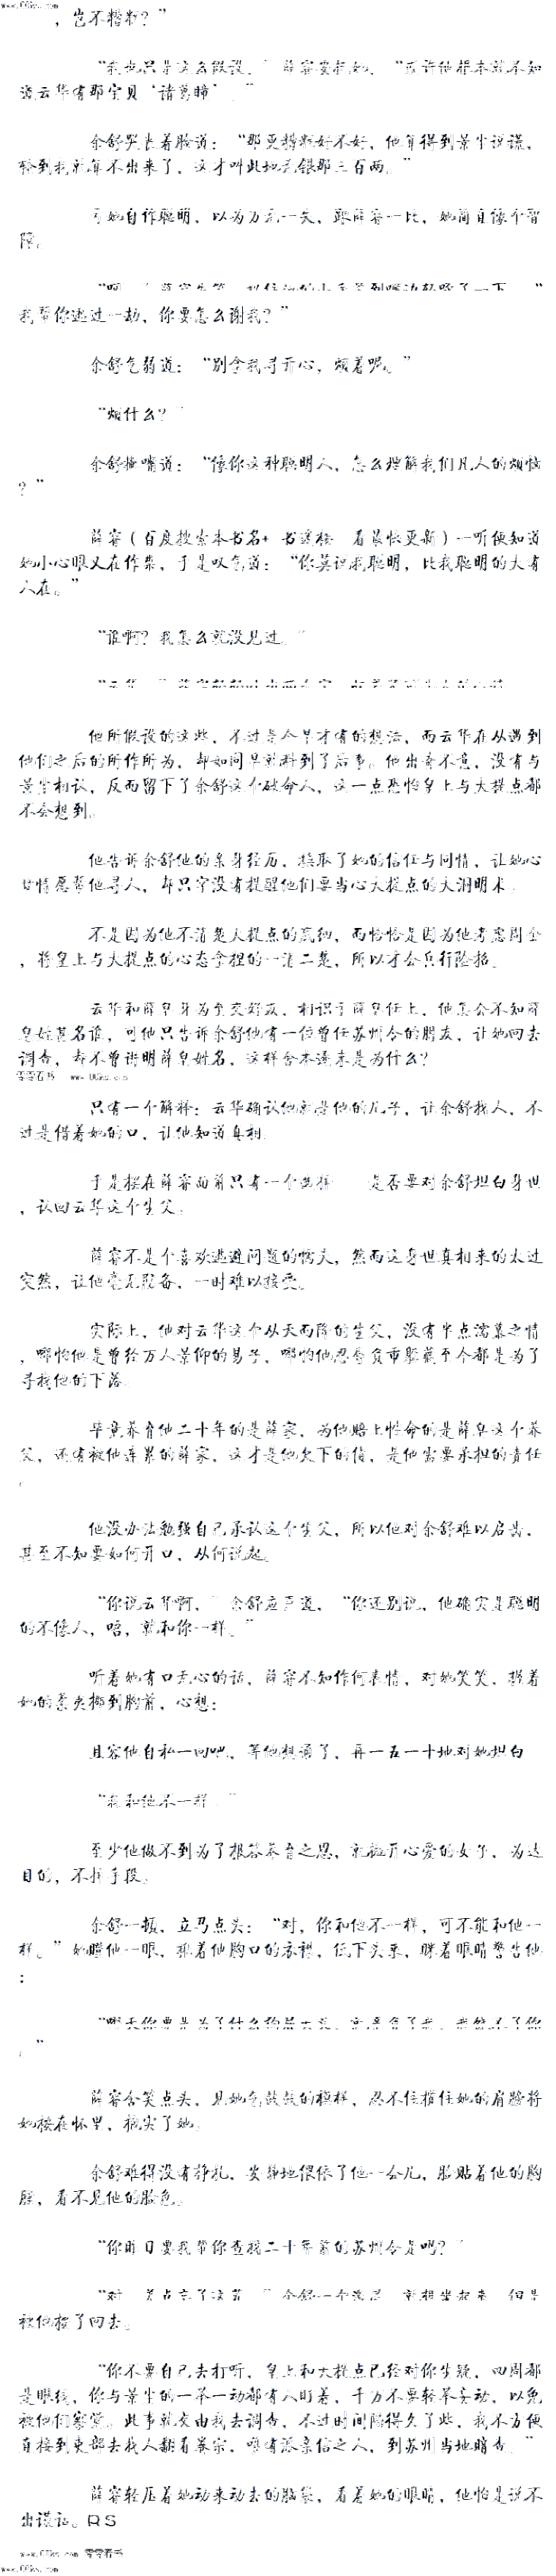 www.00ks.com
，岂不糟糕？”
“我也只是这么假设，”薛睿安抚她，“或许他根本就不知
道云华有那宝贝‘诸葛瞳’。”
余舒哭丧着脸道：“那更糟糕好不好，他算得到景尘说谎，
轮到我就算不出来了，这才叫此地无银那三百两。”
亏她自作聪明，以为万无一失，跟薛睿一比，她简直像个智
障。
我帮你逃过一劫，你要怎么谢我？”
余舒气弱道：“别拿我寻开心，烦着呢。”
“烦什么？”
余舒撇嘴道：“像你这种聪明人，怎么理解我们凡人的烦恼
？”
薛睿（百度搜索本书名+ 书 看最快更新）一听便知道
她小心眼又在作祟，于是叹气道：“你莫说我聪明，比我聪明的大有
人在。”
“谁啊？我怎么就没见过。”
他所假设的这些，不过是今早才有的想法，而云华在从遇到
他们之后的所作所为，却如同早就料到了后事。他出奇不意，没有与
景尘相认，反而留下了余舒这个破命人，这一点恐怕皇上与大提点都
不会想到。
他告诉余舒他的亲身经历，换取了她的信任与同情，让她心
甘情愿帮他寻人，却只字没有提醒他们要当心大提点的大洞明术。
不是因为他不清楚大提点的底细，而恰恰是因为他考虑周全
，将皇上与大提点的心态拿捏的一清二楚，所以才会兵行险招。
云华和薛皂身为至交好友，相识于薛皂任上，他怎会不知薛
皂姓甚名谁，可他只告诉余舒他有一位曾任苏州令的朋友，让她回去
调查，却不曾讲明薛皂姓名，这样舍本逐末是为什么？
零零看书 www.00ks.com
只有一个解释：云华确认他就是他的儿子，让余舒找人，不
过是借着她的口，让他知道真相。
于是摆在薛睿面前只有一个选择——是否要对余舒坦白身世
，认回云华这个生父。
薛睿不是个喜欢逃避问题的懦夫，然而这身世真相来的太过
突然，让他毫无设备，一时难以接受。
实际上，他对云华这个从天而降的生父，没有半点濡慕之情
，哪怕他是曾经万人景仰的易子，哪怕他忍辱负重躲藏至今都是为了
寻找他的下落。
毕竟养育他二十年的是薛家，为他赔上性命的是薛皂这个养
父，还有被他连累的薛家，这才是他欠下的债，是他需要承担的责任
。
他没办法勉强自己承认这个生父，所以他对余舒难以启齿，
甚至不知要如何开口，从何说起。
“你说云华啊，”余舒应声道，“你还别说，他确实是聪明
的不像人，唔，就和你一样。”
听着她有口无心的话，薛睿不知作何表情，对她笑笑，揽着
她的肩头挪到胸前，心想：
且容他自私一回吧，等他想通了，再一五一十地对她坦白
“我和他不一样。”
至少他做不到为了报答养育之恩，就抛开心爱的女子，为达
目的，不择手段。
余舒一顿，立马点头：“对，你和他不一样，可不能和他一
样。”她瞪他一眼，揪着他胸口的衣襟，低下头来，眯着眼睛警告他
：
“哪天你要是为了什么狗屁大义，就弃舍了我，我饶不了你
。”
薛睿含笑点头，见她气鼓鼓的模样，忍不住搂住她的肩膀将
她按在怀里，抱实了她。
余舒难得没有挣扎，安静地偎依了他一会儿，脸贴着他的胸
膛，看不见他的脸色。
“你昨日要我帮你查找二十年前的苏州令是吗？”
被他按了回去。
“你不要自己去打听，皇上和大提点已经对你生疑，四周都
是眼线，你与景尘的一举一动都有人盯着，千万不要轻举妄动，以免
被他们察觉。此事就交由我去调查，不过时间隔得久了些，我不方便
直接到吏部去找人翻看卷宗，唯有派亲信之人，到苏州当地暗查。”
薛睿轻压着她动来动去的脑袋，看着她的眼睛，他怕是说不
出谎话。RS
www.00ks.com 零零看书
www.00ks.com